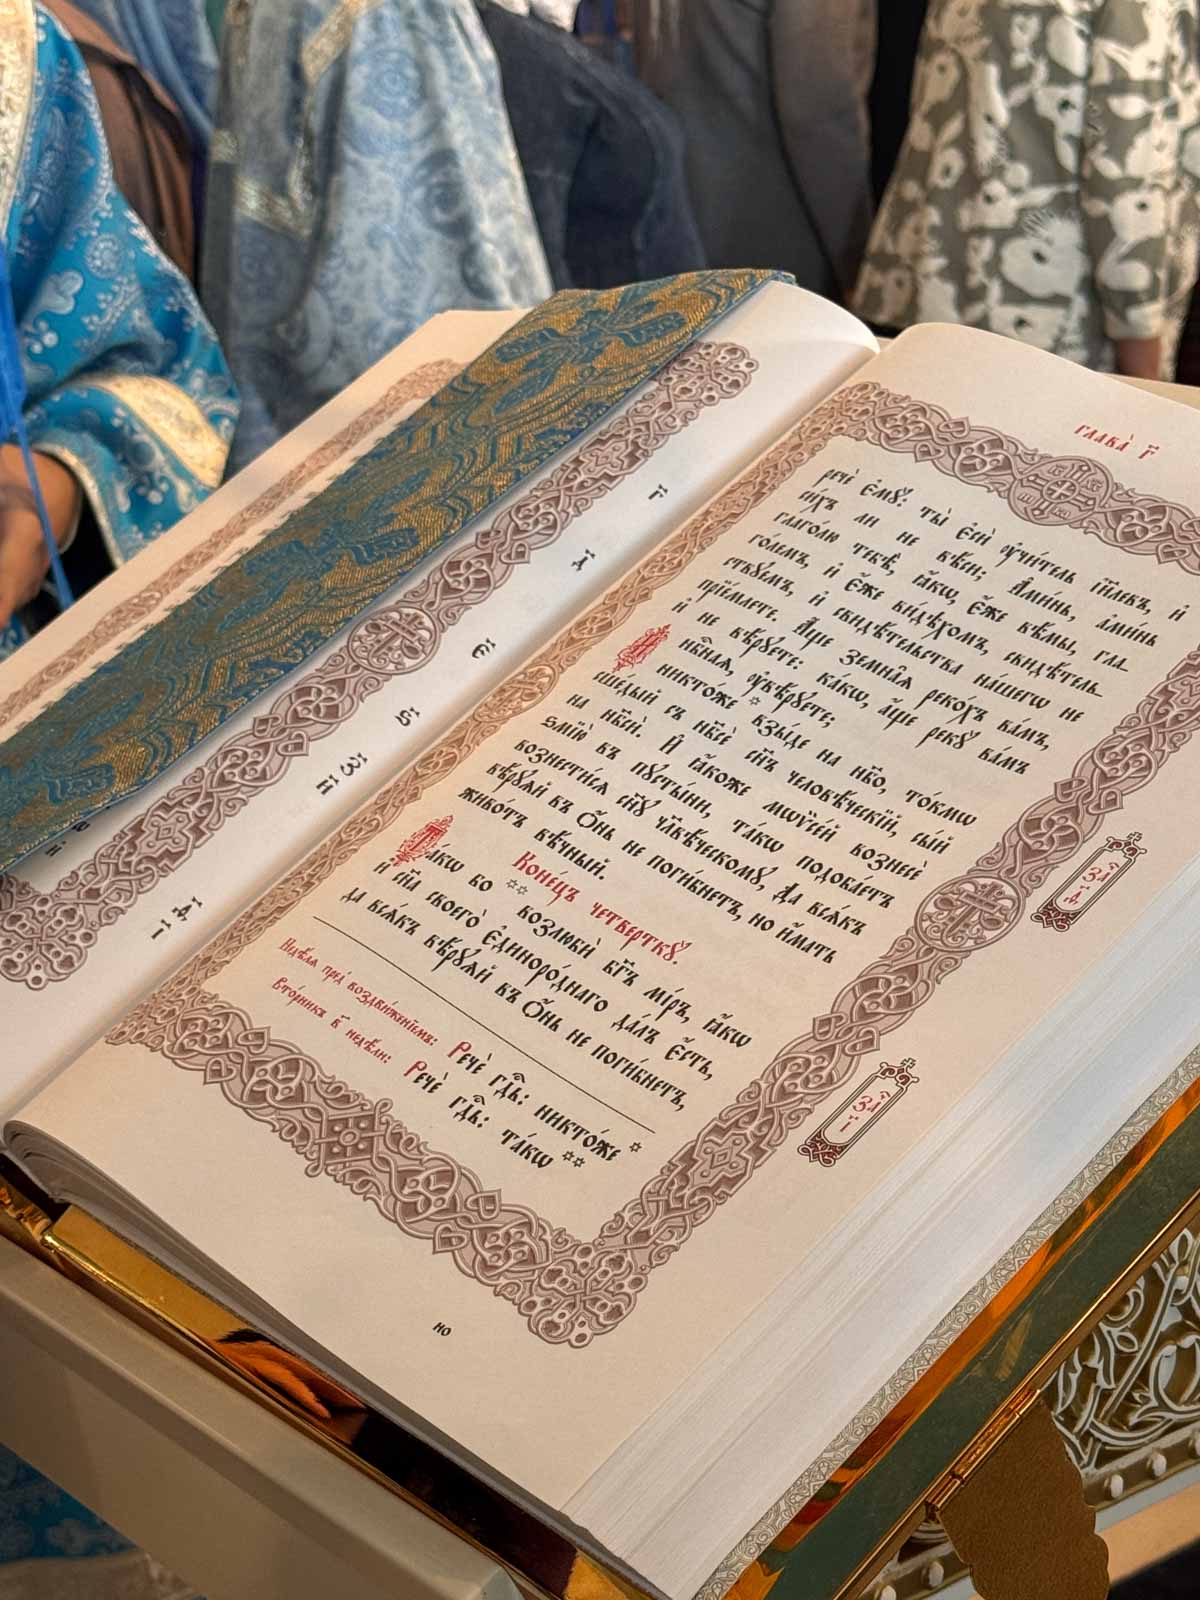 Глава̀ г҃
речѐ є҆мꙋ̀: ты̀ є҆сѝ ᲂу҆чи́тель і҆и҃левъ, и҆
си́хъ ли не вѣ́си; А҆ми́нь, а҆ми́нь
глаго́лю тебѣ̀, ꙗ҆́кѡ, є҆́же вѣ́мы, гла_
го́лемъ, и҆ є҆́же ви́дѣхомъ, свидѣ́тель_
ствꙋемъ, и҆ свидѣ́тельства на́шегѡ не
прїе́млете. А҆́ще земна̑ѧ реко́хъ ва́мъ,
и҆ не вѣ́рꙋете: ка́кѡ, а҆́ще рекꙋ̀ ва́мъ
нбⷭ҇наѧ, ᲂу҆вѣ́рꙋете;
И҆ никто́же ✡ взы́де на нб҃о, то́кмѡ
сше́дый съ нб҃сѐ сн҃ъ человѣ́ческїй, сы́й
на нб҃сѝ. И҆ ꙗ҆́коже мѡѷсе́й вознесѐ
ѕмїю̀ въ пꙋсты́ни, та́кѡ подоба́етъ
вознести́сѧ сн҃ꙋ чл҃вѣ́ческомꙋ, да всѧ́къ
вѣ́рꙋѧй въ ѻ҆́нь не поги́бнетъ, но и҆́мать
живо́тъ вѣ́чный.
Коне́цъ четверткꙋ̀.
Та́кѡ бо ✡✡ возлюбѝ бг҃ъ мі́ръ, ꙗ҆́кѡ
и҆ сн҃а своего̀ є҆диноро́днаго да́лъ є҆́сть,
да всѧ́къ вѣ́рꙋѧй въ ѻ҆́нь не поги́бнетъ,
Недѣ́лѧ пред̾ воздви́женїемъ: Речѐ гдⷭ҇ь: никто́же ✡
Вто́рника в҃ недѣ́ли: Речѐ гдⷭ҇ь: та́кѡ ✡✡
но
заⷱ҇ ѳ҃.
заⷱ҇ і҃.